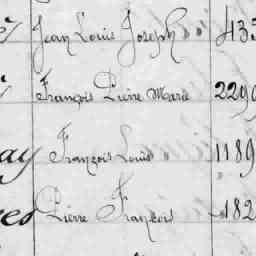 Jean Louis Joseph 435
François Pierre Marie 2290
ay François Louis 1189
es Pierre François 182